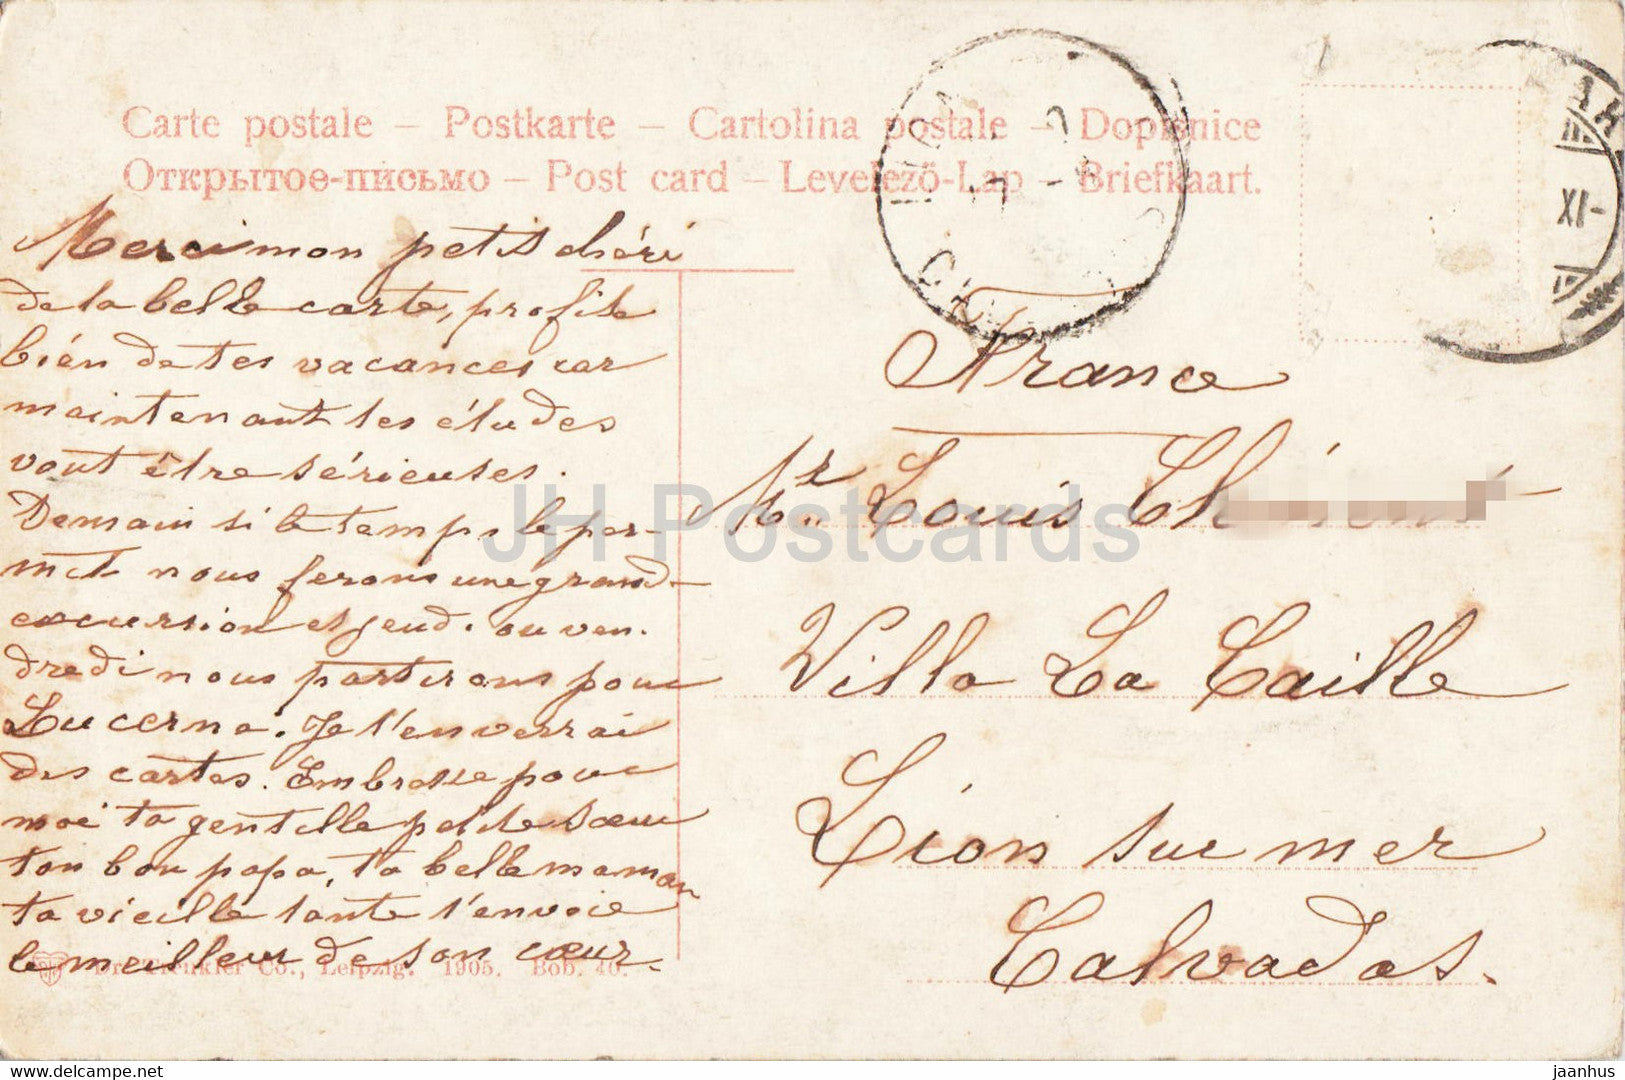 Carte postale – Postkarte – Cartolina postale – Dopisnice
Открытое-письмо – Post card – Levelező-Lap – Briefkaart.
Merci mon petit chéri
de la belle carte, profite
bien de tes vacances car
maintenant les études
vont être sérieuses.
Demain si le temps le per-
met nous ferons une grand
excursion et jeudi ou ven-
dredi nous partirons pour
Lucerne. Je t'enverrai
des cartes. Embrasse pour
moi ta gentille petite sœur
ton bon papa, ta belle maman
ta vieille tante t'envoie
le meilleur de son cœur.
France
Mr Louis
Villa La Caille
Lion sur mer
Calvados.
XI-
Dr. Trenkler Co., Leipzig. 1905. Bob. 40.
JH Postcards
delcampe.net
jaanhus